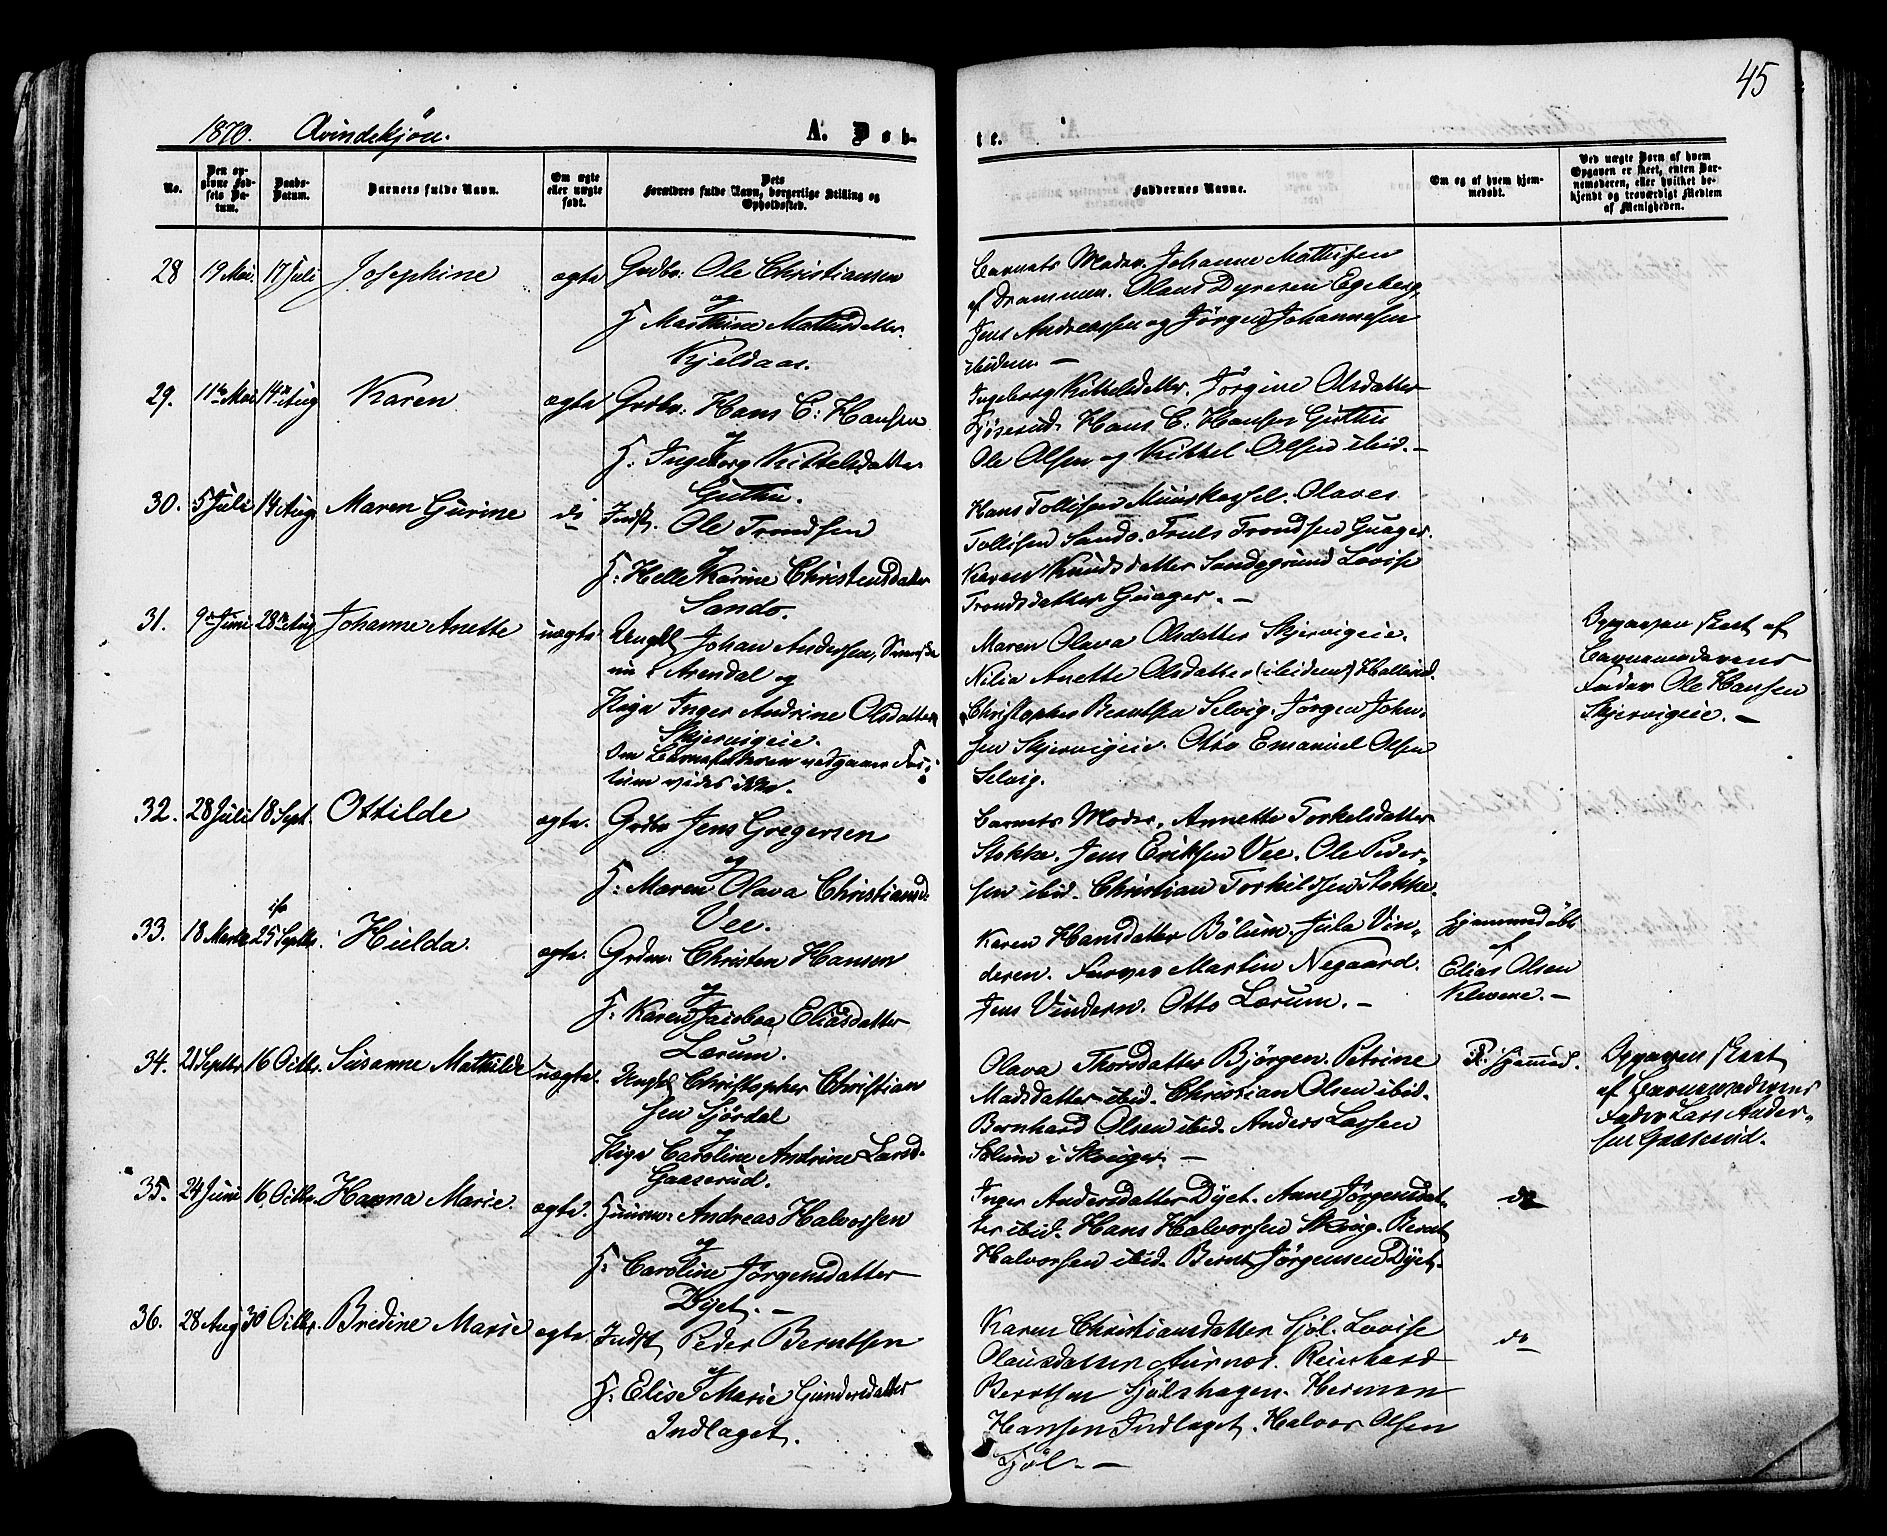 45
1870. Qvindekjön.
A. Døb-
te.
No.
Den opgivne Fødsels Datum.
Daabs-Datum.
Barnets fulde Navn.
Om ægte eller uægte født.
Dets Forældres fulde Navn, borgerlige Stilling og Opholdsted.
Faddernes Navne.
Om og af hvem hjemmedøbt.
Ved uægte Børn af hvem Opgaven er skeet, enten Barnemoderen, eller hvilket bekjendt og troværdigt Medlem af Menigheden.
28 19 Mai. 17 Juli Josephine ægte Grdbr: Ole Christiansen
og
H Marthine Mathisdatter
Kjeldaas.
Barnets Moder. Johanne Mathisen
af Drammen. Olaus Dyresen Egeberg,
Jens Andreassen og Jörgen Johannesen
ibidem. —
29. 11te Mai 14de Aug Karen ægte Grdbr: Hans C: Hansen
og
H: Ingeborg Kittelsdatter
Guthu.
Ingeborg Kittelsdatter. Jörgine Olsdatter
Hans C: Hansen Guthu
Ole Olsen og Kittel Olsen ibid. —
30. 5 Juli 14 Aug. Maren Gurine do Indst. Ole Trondsen
og
H: Helle Karine Christensdatter
Sando.
Hans Tollifsen Olaves
Tollifsen Sando. Truls Trondsen Guager.
Karen Knudsdatter Sandegrund Lovise
Trondsdatter Guager. —
31. 9de Juni 28de Aug Johanne Anette uægte Ungkl Johan Andersen,
nu i Arendal og
Pige Inger Andrine Olsdatter
Skjervigeie.
Om Barnefaderen vedgaaer Fac-
tum vides ikke.
Maren Olava Olsdatter Skjervigeie.
Nilia Anette Olsdatter (ibidem)
Christopher Berntsen Selvig. Jörgen John-
sen Skjervigeie. Otto Emanuel Olsen
Selvig.
Opgaven skeet af
Barnemoderens
Fader Ole Hansen
Skjervigeie. —
32. 28 Juli 18 Sept. Ottilde ægte. Grdbr Jens Gregersen
og
H: Maren Olava Christiansd:
Vee.
Barnets Moder, Annette Torkelsdatter
Stokke. Jens Eriksen Vee. Ole Peder-
sen ibid. Christian Torkildsen Stokke.
33. 18 Marts 25 Septbr. Hulda. ægte. Grdm: Christen Hansen
og
H: Karen Jacobea Eliasdatter
Lærum.
Karen Hansdatter Bölum. Jula Vin-
deren. Farver Martin Negaard.
Jens Vindern. Otto Lærum. —
Hjemmedöbt
af
Elias Olsen
Klevene. —
34. 21 Septbr 16 Octbr. Susanne Mathilde uægte. Ungkl Christopher Christian
sen Fjördal
og
Pige Caroline Andrine Larsd.
Gaaserud.
Olava Thorsdatter Björgen. Petrine
Madsdatter ibid. Christian Olsen ibid.
Bernhard Olsen ibid. Anders Larsen
Solum i Skouger. —
P. hjemmed.
Opgaven skeet
af Barnemoderens
Fader Lars Ander-
sen Gaaserud.
35. 24 Juni 16 Octbr. Hanna Marie. ægte. Huusm: Andreas Halvorsen
og
H: Caroline Jörgensdatter
Dyet. —
Inger Andersdatter Dyet. Anne Jörgensdat-
ter ibid. Hans Halvorsen Skoug. Bernt
Halvorsen ibid. Bernt Jörgensen Dyet.
do
36. 28 Aug 30 Octbr. Bredine Marie ægte. Indst Peder Berntsen
og
H: Elise Marie Gundersdatter
Indlaget.
Karen Christiansdatter Fjöl. Lovise
Olausdatter Reinhard
Berntsen Fjölshagen. Herman
Hansen Indlaget. Halvor Olsen
Fjöl. —
do